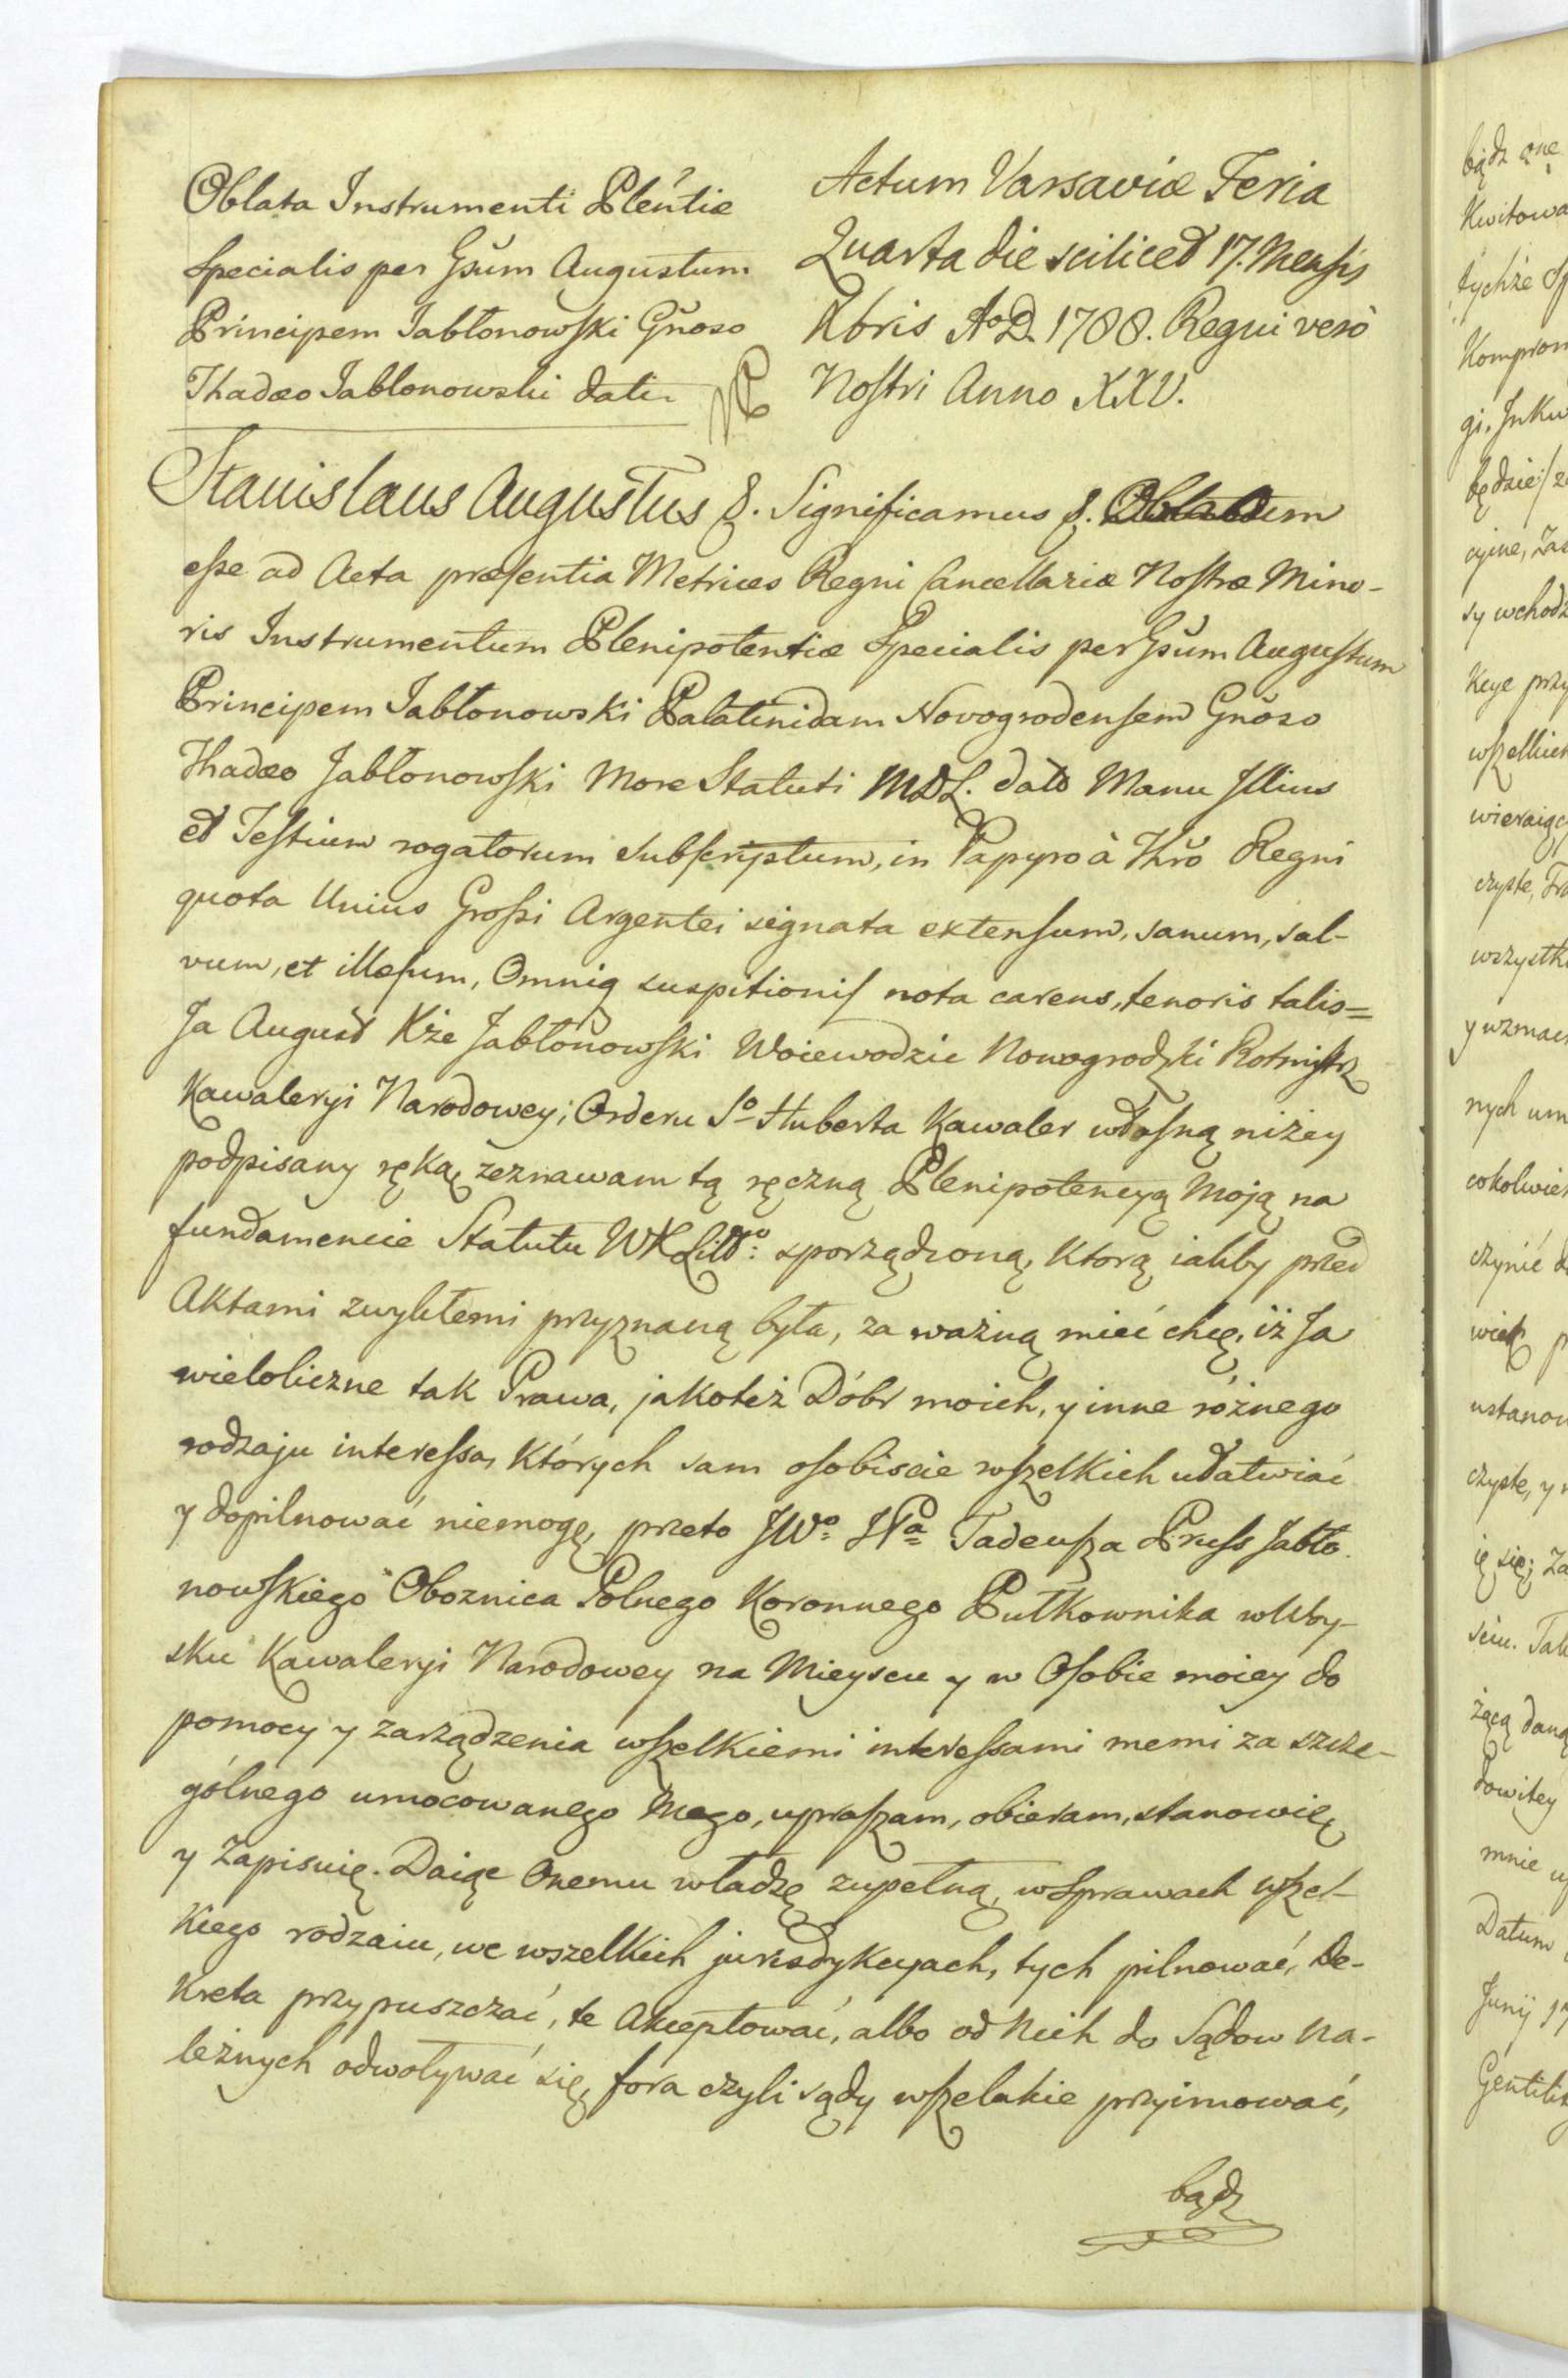 Oblata Instrumenti Plentiæ
Specialis per Gsum Augustum
Principem Jabłonowski Gnoso
Thadæo Jabłonowski dati
Actum Varsaviæ Feria
Quarta die scilicet 17. Mensis
Xbris Ao D. 1788. Regni verò
Nostri Anno XXV.
Stanislaus Augustus &. Significamus &. Oblatum
esse ad Acta præsentia Metrices Regni Cancellariæ Nostræ Mino-
ris Instrumentum Plenipotentiæ Specialis per Gsum Augustum
Principem Jabłonowski Palatinidam Novogrodensem Gnoso
Thadæo Jabłonowski More Statuti MDL. dato Manu Illius
et Testium rogatorum subscriptum, in Papyro à Thro Regni
quota Unius Grossi Argentei signata extensum, sanum, sal-
vum, et illæsum, Omniq suspitionis nota carens, tenoris talis=
Ja August Xże Jabłonowski Woiewodzic Nowogrodzki Rotmistrz
Kawaleryi Narodowey; Orderu So Huberta Kawaler własną niżey
podpisany ręką, zeznawam tą ręczną Plenipotencyą Moją na
fundamencie Statutu WXLitto: sporządzoną, Ktorą iakby przed
Aktami zwykłemi przyznaną była, za ważną mieć chcę, iż Ja
wieloliczne tak Prawa, jakoteż Dóbr moich, y inne różnego
rodzaju interessa, Których sam osobiscie wszelkich ułatwiać
y dopilnować niemogę, przeto JWo JPa Tadeusza Pruss Jabło
nowskiego Oboznica Polnego Koronnego Pułkownika wWoy-
sku Kawaleryi Narodowey na Mieyscu y w Osobie moiey do
pomocy y zarządzenia wszelkiemi interessami memi za szcze-
gólnego umocowanego Mego, upraszam, obieram, stanowię
y Zapisuię. Daiąc Onemu władzę zupełną, wSprawach wszel-
Kiego rodzaiu, we wszelkich jurisdykcyach, tych pilnować, De-
Kreta przypuszczać, te Akceptować, albo od Nich do Sądow na-
leżnych odwoływać się, fora czyli sądy wszelakie przyimować,
bądz
bądz onę
Kwitowa
tychże
Kompro
gi. Inkw
będzie/
cyine, Za
sy wchodz
Kcye przy
wszelkich
wieraiąc
czyste,
wszystk
y wzmac
nych um
cokolwie
czynić d
ustanow
czyste, y
ię się; Za
sciu. Tak
żącą daną
mnie
Datum
Junij 17
Gentilit